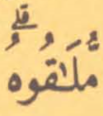 مُّلَـٰقُوهُ ۗ